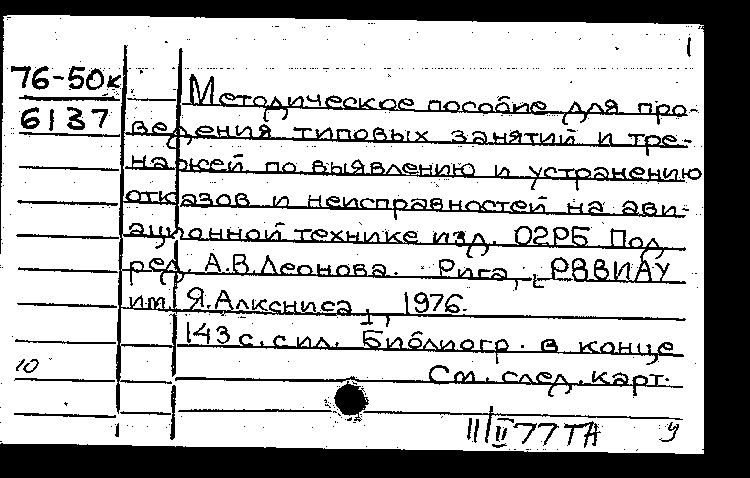 1
76-50к
6137
Методическое пособие для про-
ведения типовых занятий и тре-
нажей по выявлению и устранению
отказов и неисправностей на ави-
ационной технике изд. 02РБ Под
ред. А.В.Леонова. Рига, РВВИАУ
им. Я.Алксниса, 1976.
143 с. с ил. Библиогр. в конце
См. след. карт.
10
11/II 77 ТА